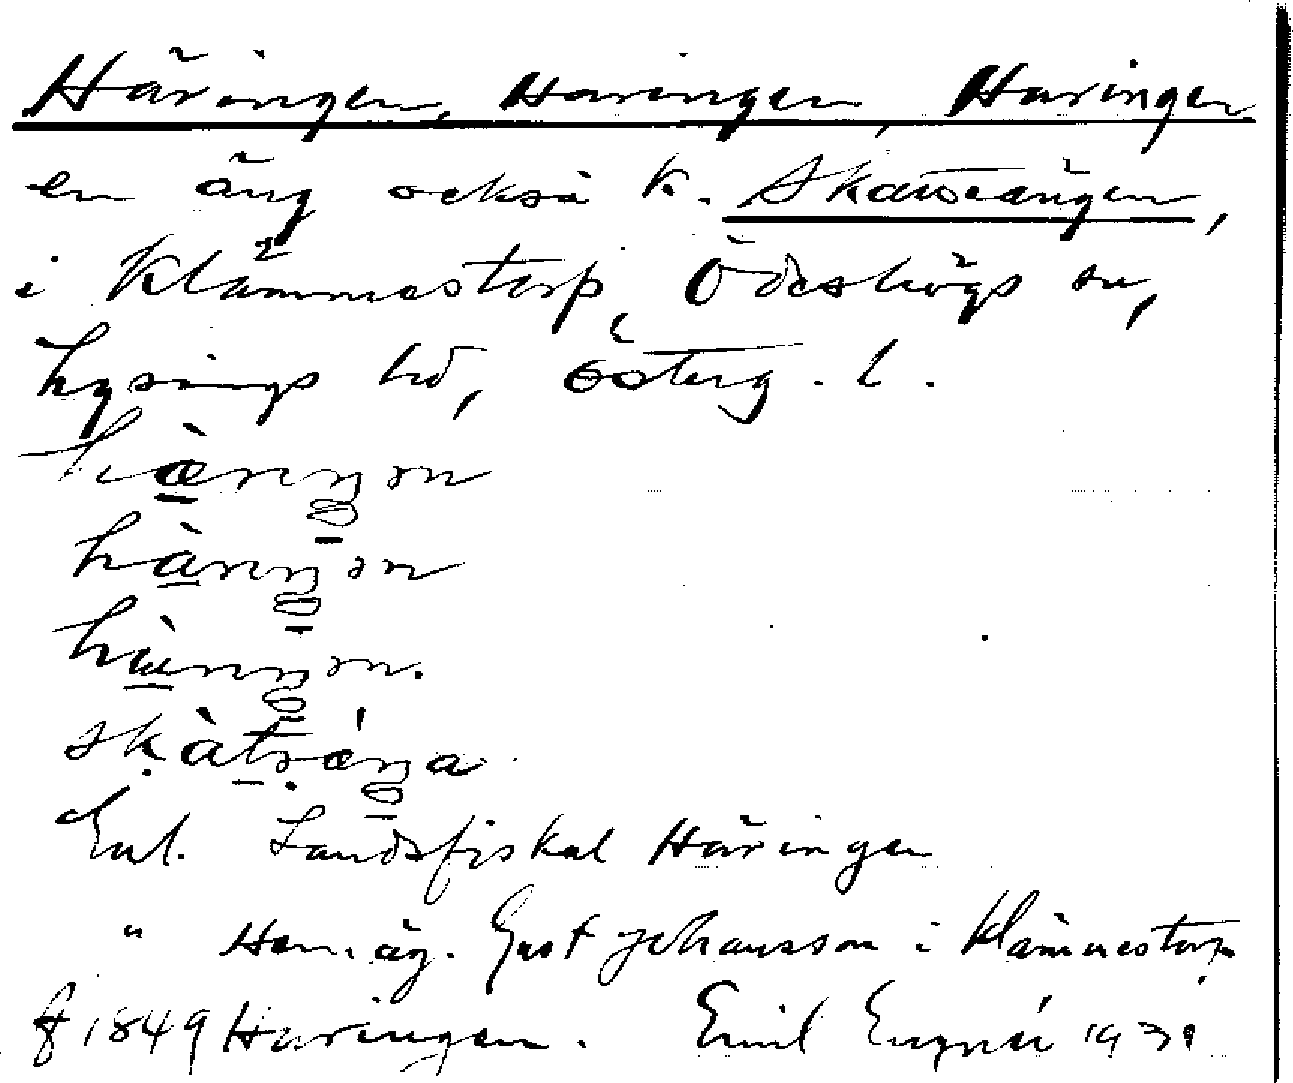 Häringen, Haringen, Haringen
en äng också k. Skatseängen,
i Klämmestorp, Ödeshögs sn,
Lysings hd, Österg. l.
hæ̀riŋən
hàriŋən
hàriŋən.
skàtsǽŋa
Enl. Landsfiskal Häringen
" Hem.äg. Gust Johansson i Klämmestorp
f 1849 Haringen. Emil Engnér 1931